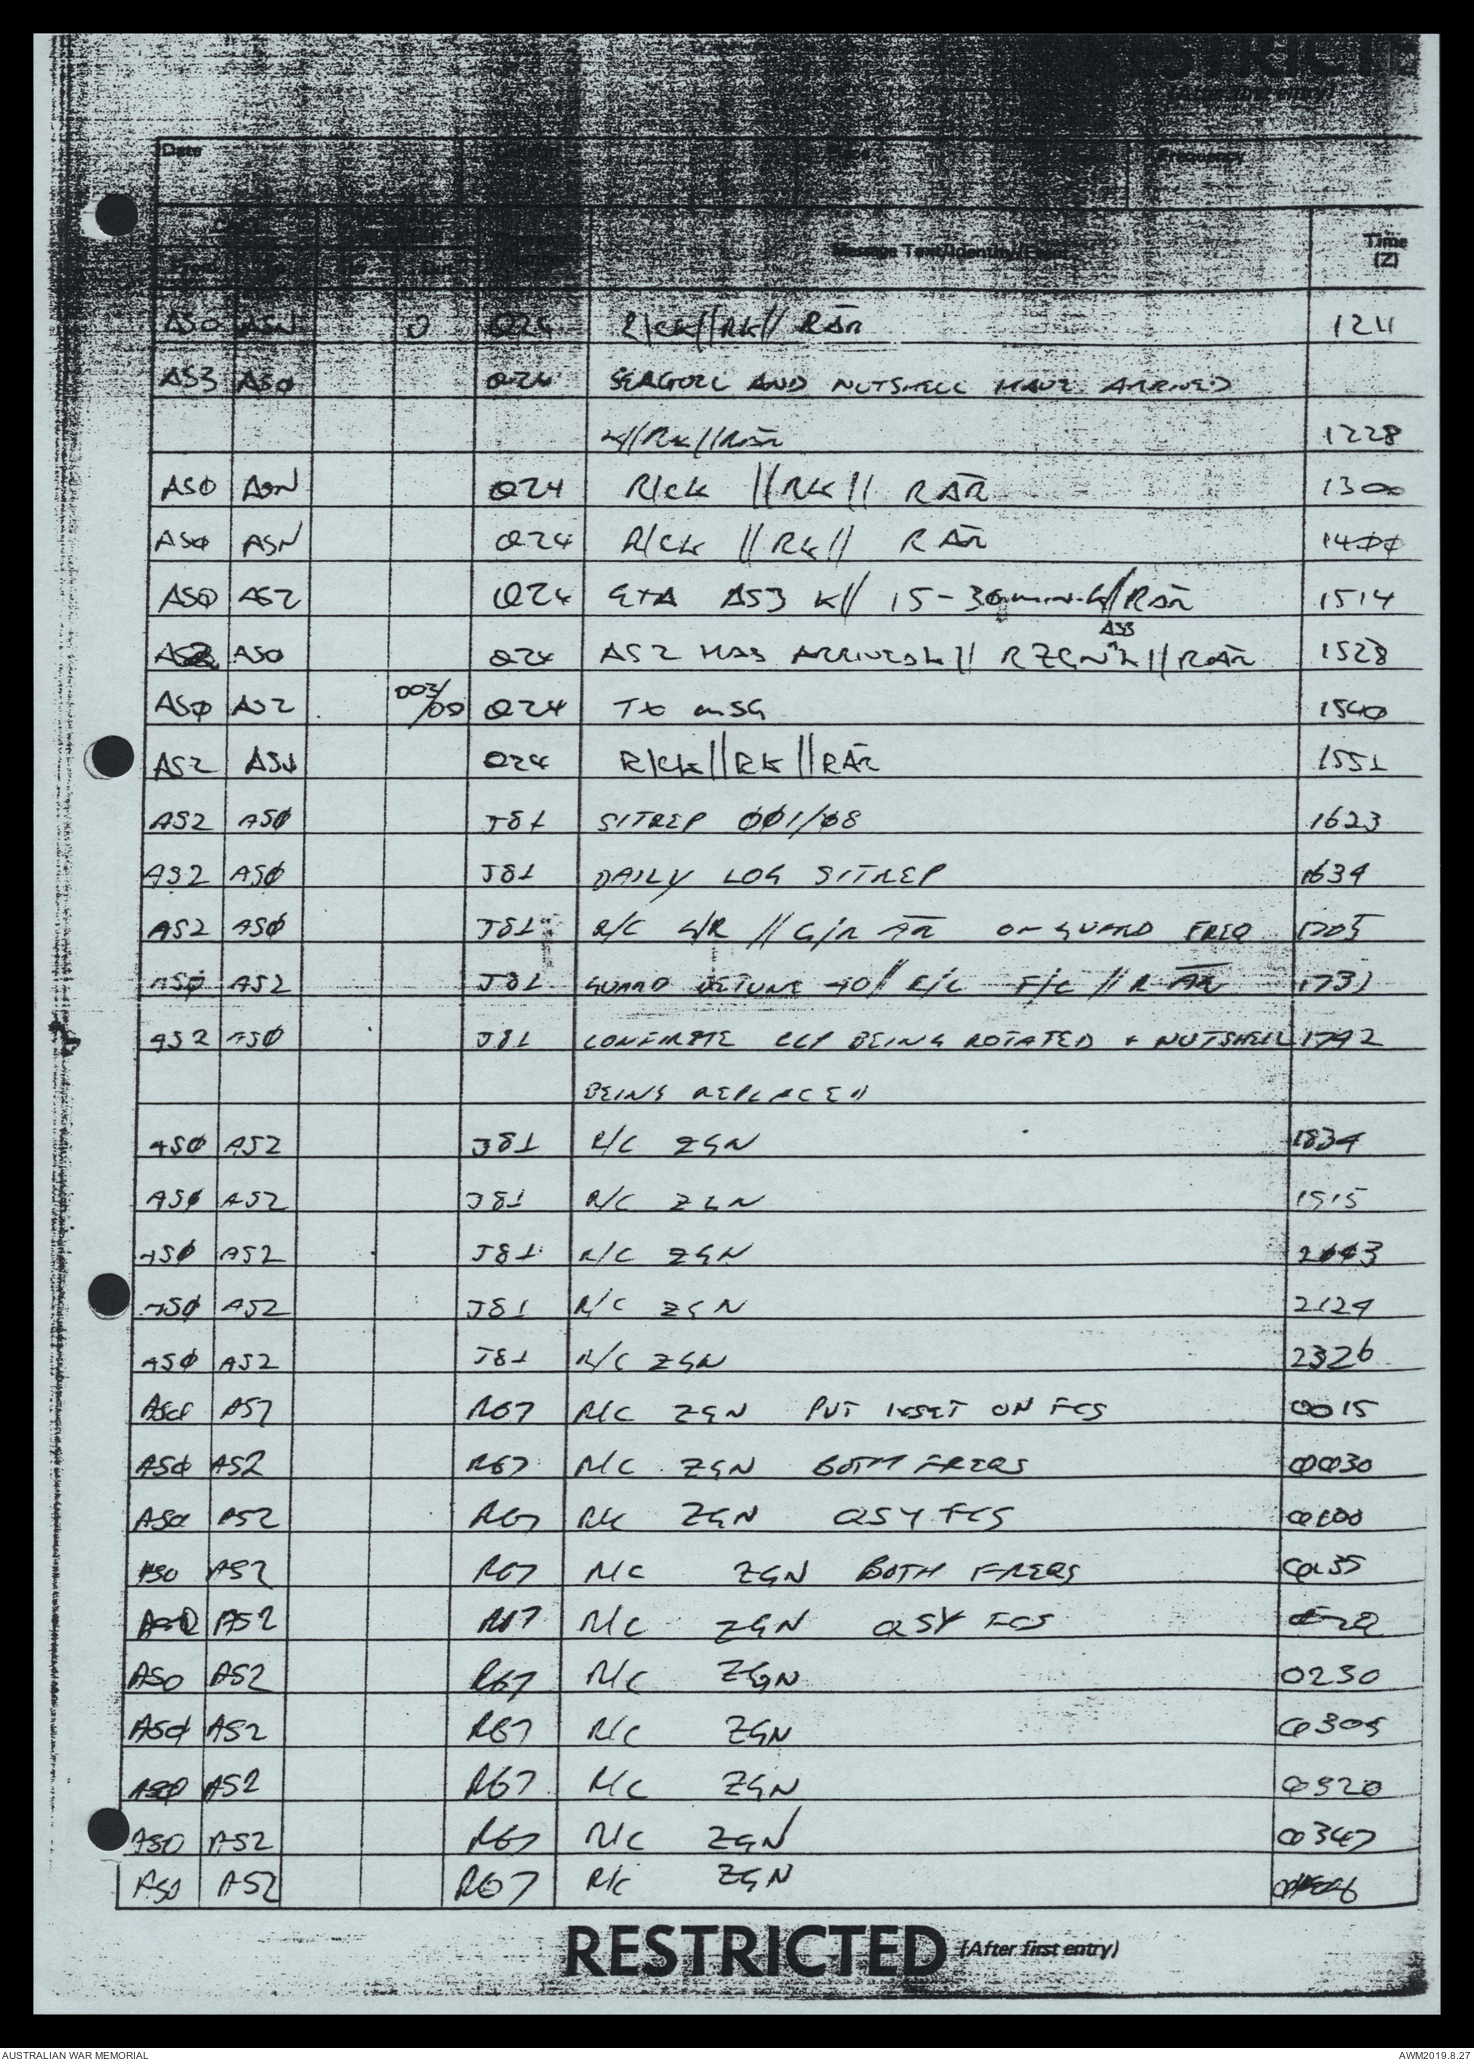 RESTRICTE
(After first entry)
Date Frequency
Message Text/Identity/Event Time
(Z)
AS0 ASN Q24 R/CK//RK// RAR 1211
AS3 ASØ Q24 SEAGULL AND NUTSHELL HAVE ARRIVED
K//RK//RAR 1228
ASØ ASN Q24 R/CK //RK// RAR 1300
ASØ ASN Q24 R/CK //RK// RAR 14ØØ
ASØ AS2 Q24 ETA AS3 K// 15-30 MIN K//RAR 1514
AS3
ASØ Q24 AS2 HAS ARRIVED K// RZGN K//RAR 1528
ASØ AS2 003/ Q24 TX MSG 154Ø
AS2 Q24 R/CK//RK//RAR 1551
AS2 ASØ J81 SITREP ØØ1/Ø8 1623
AS2 ASØ J81 DAILY LOG SITREP 1634
AS2 ASØ J81 R/C G/R // G/R AR ON GUARD FREQ 1705
ASØ AS2 J81 GUARD R/C F/C // R AR 1731
AS2 ASØ J81 BEING ROTATED + NUTSHELL 1742
BEING REPLACED
ASØ AS2 J81 R/C ZGN 1834
ASØ AS2 J81 R/C ZGN 1915
ASØ AS2 J81 R/C ZGN 2Ø43
ASØ AS2 J81 R/C ZGN 2124
ASØ AS2 J81 R/C ZGN 2326
ASØ AS2 R67 R/C ZGN PUT INSET ON FCS 0015
ASØ AS2 R67 R/C ZGN BOTH FREQS 0030
ASØ AS2 R67 R/C ZGN QSY FCS 0100
ASO AS2 R67 R/C ZGN BOTH FREQS 0135
ASO AS2 R67 R/C ZGN QSY FCS
ASO AS2 R67 R/C ZGN 0230
ASØ AS2 R67 R/C ZGN 0305
ASØ AS2 R67 R/C ZGN 0320
ASO AS2 R67 R/C ZGN 0347
ASO AS2 R67 R/C ZGN
RESTRICTED (After first entry)
AUSTRALIAN WAR MEMORIAL AWM2019.8.27